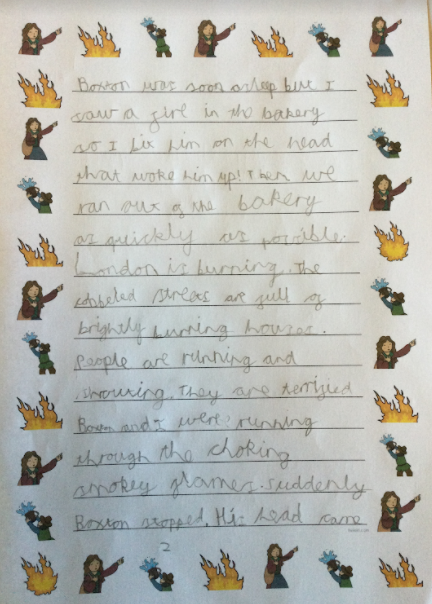 Boxton was soon asleep but I
saw a girl in the bakery
so I bit him on the head
that woke him up! Then we
ran out of the bakery
as quickly as possible.
London is burning. The
cobbeled streets are full of
brightly burning houses.
People are running and
shouting. They are terrified
Boxton and I were running
through the choking
smokey flames. Suddenly
Boxton stopped. His head came
2